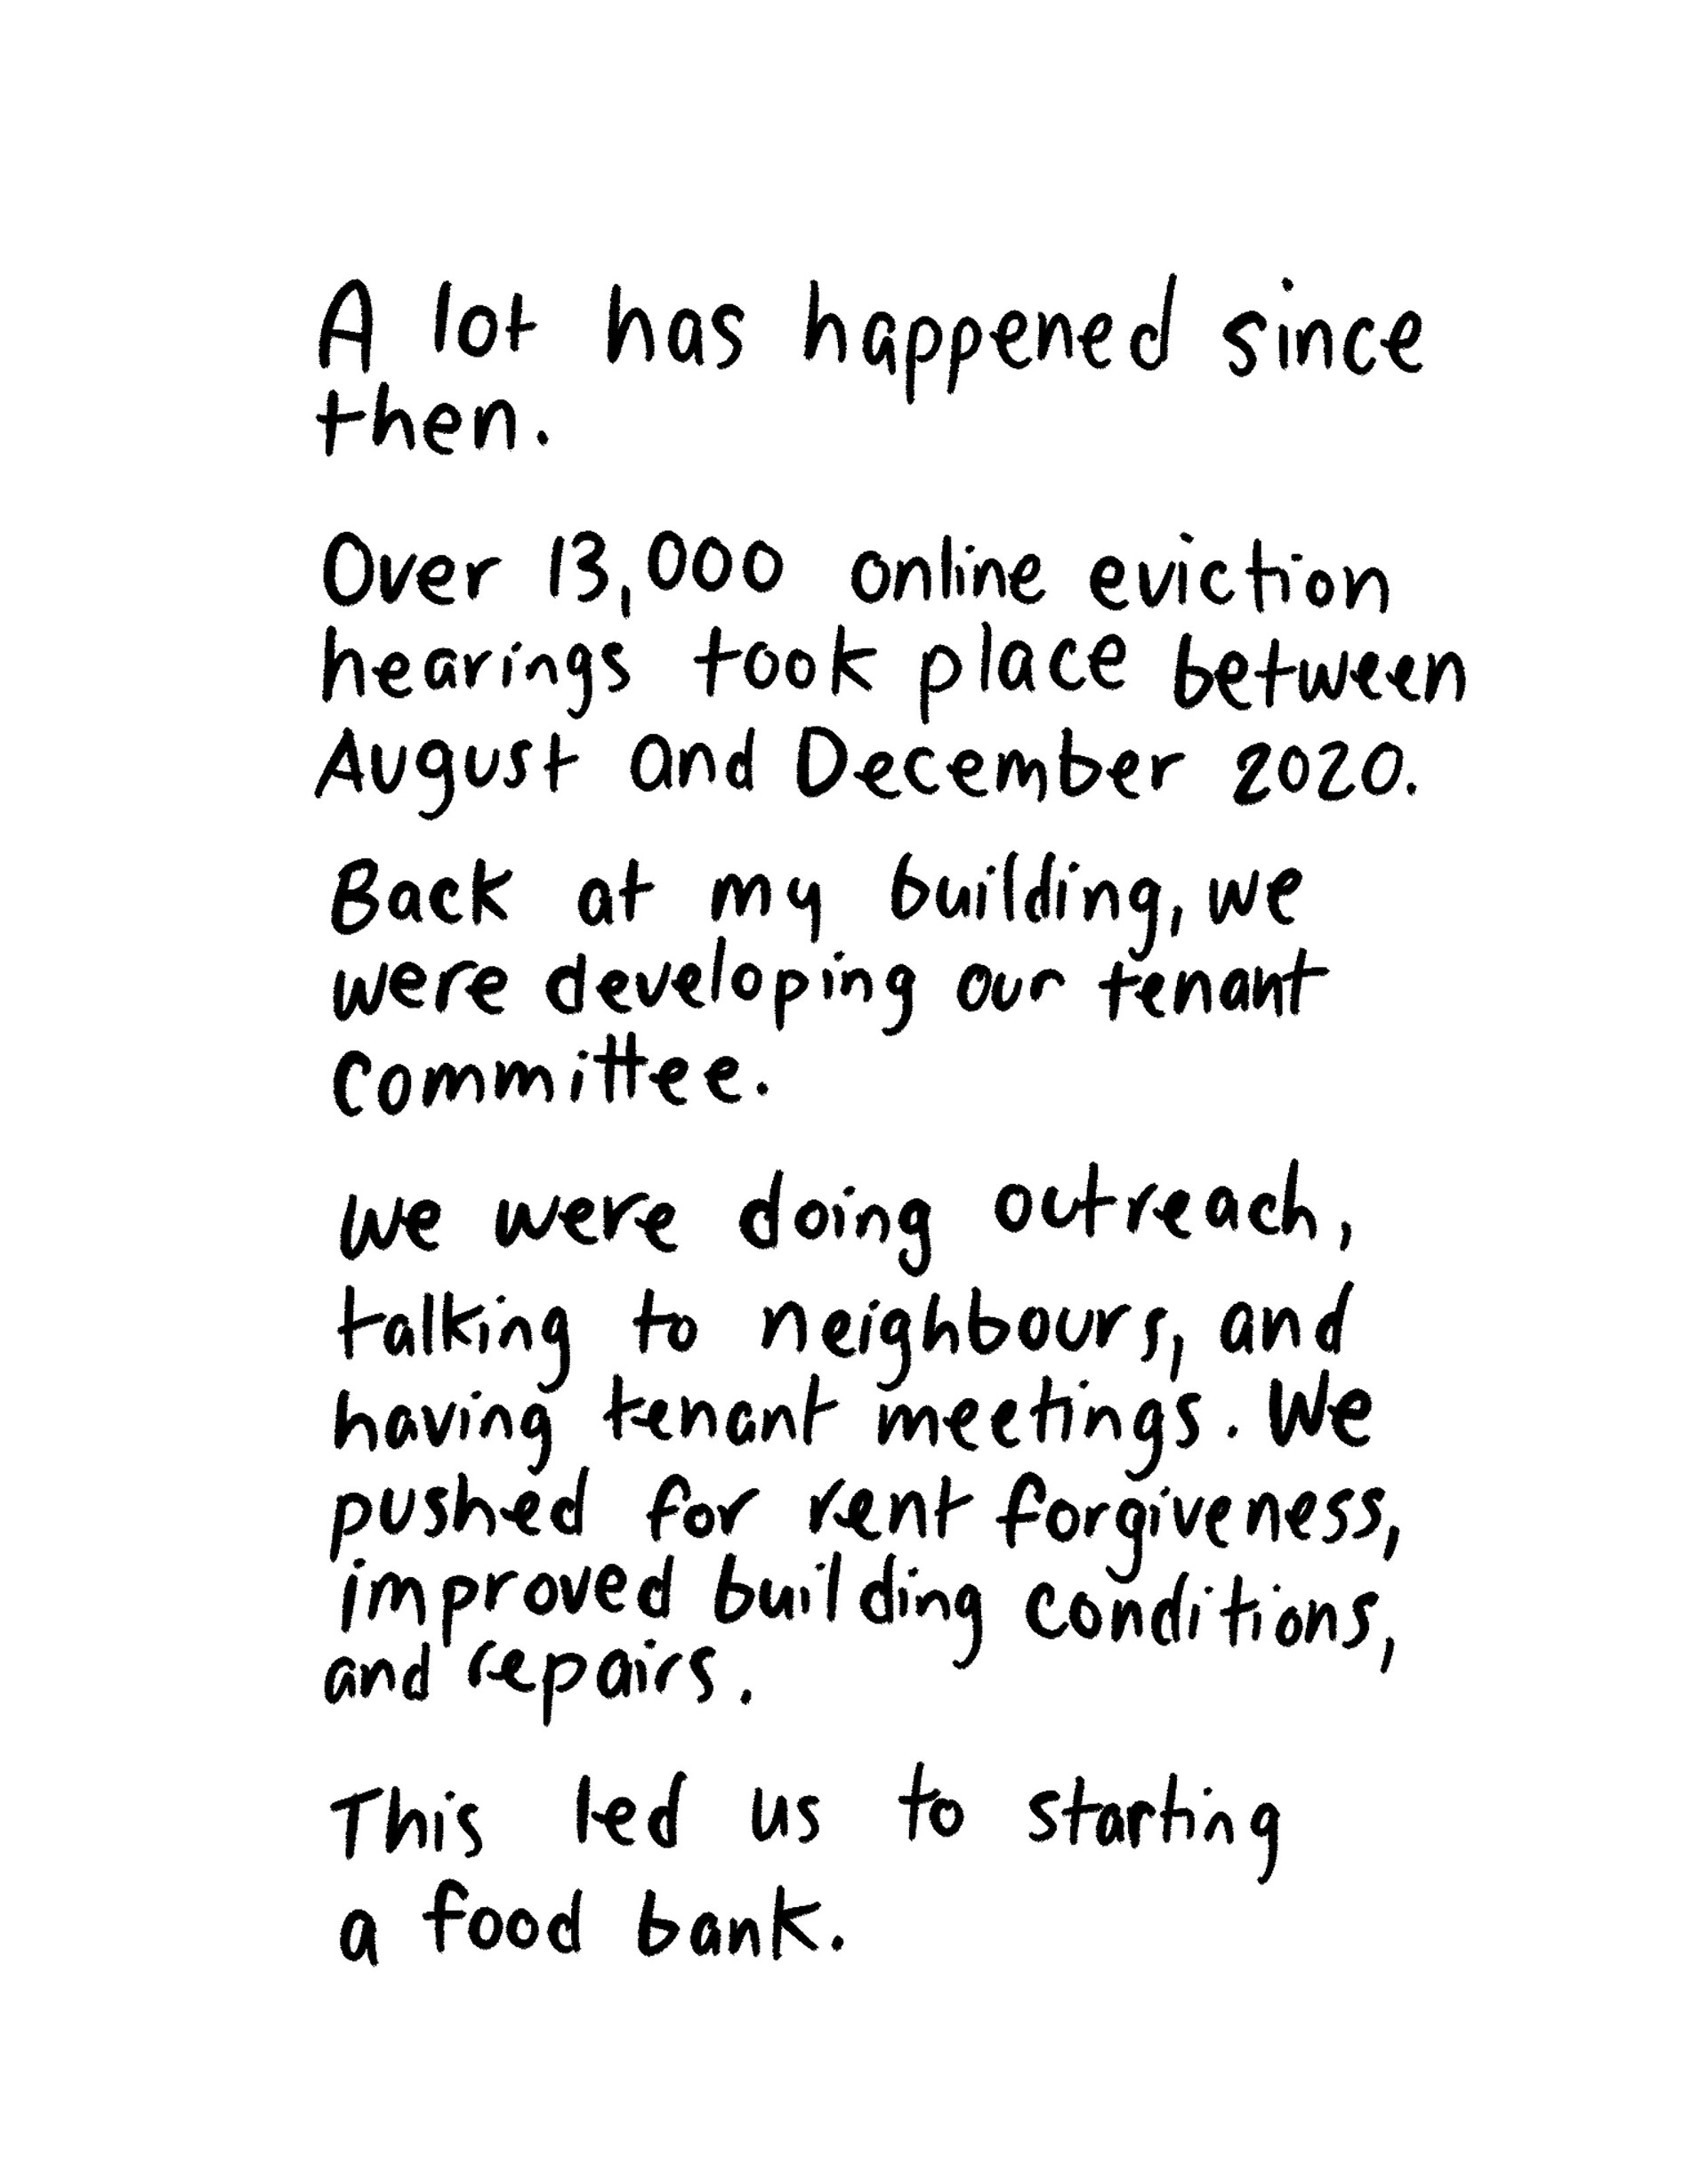 A lot has happened since
then.
Over 13,000 online eviction
hearings took place between
August and December 2020.
Back at my building, we
were developing our tenant
committee.
We were doing outreach,
talking to neighbours, and
having tenant meetings. We
pushed for rent forgiveness,
improved building conditions,
and repairs.
This led us to starting
a food bank.